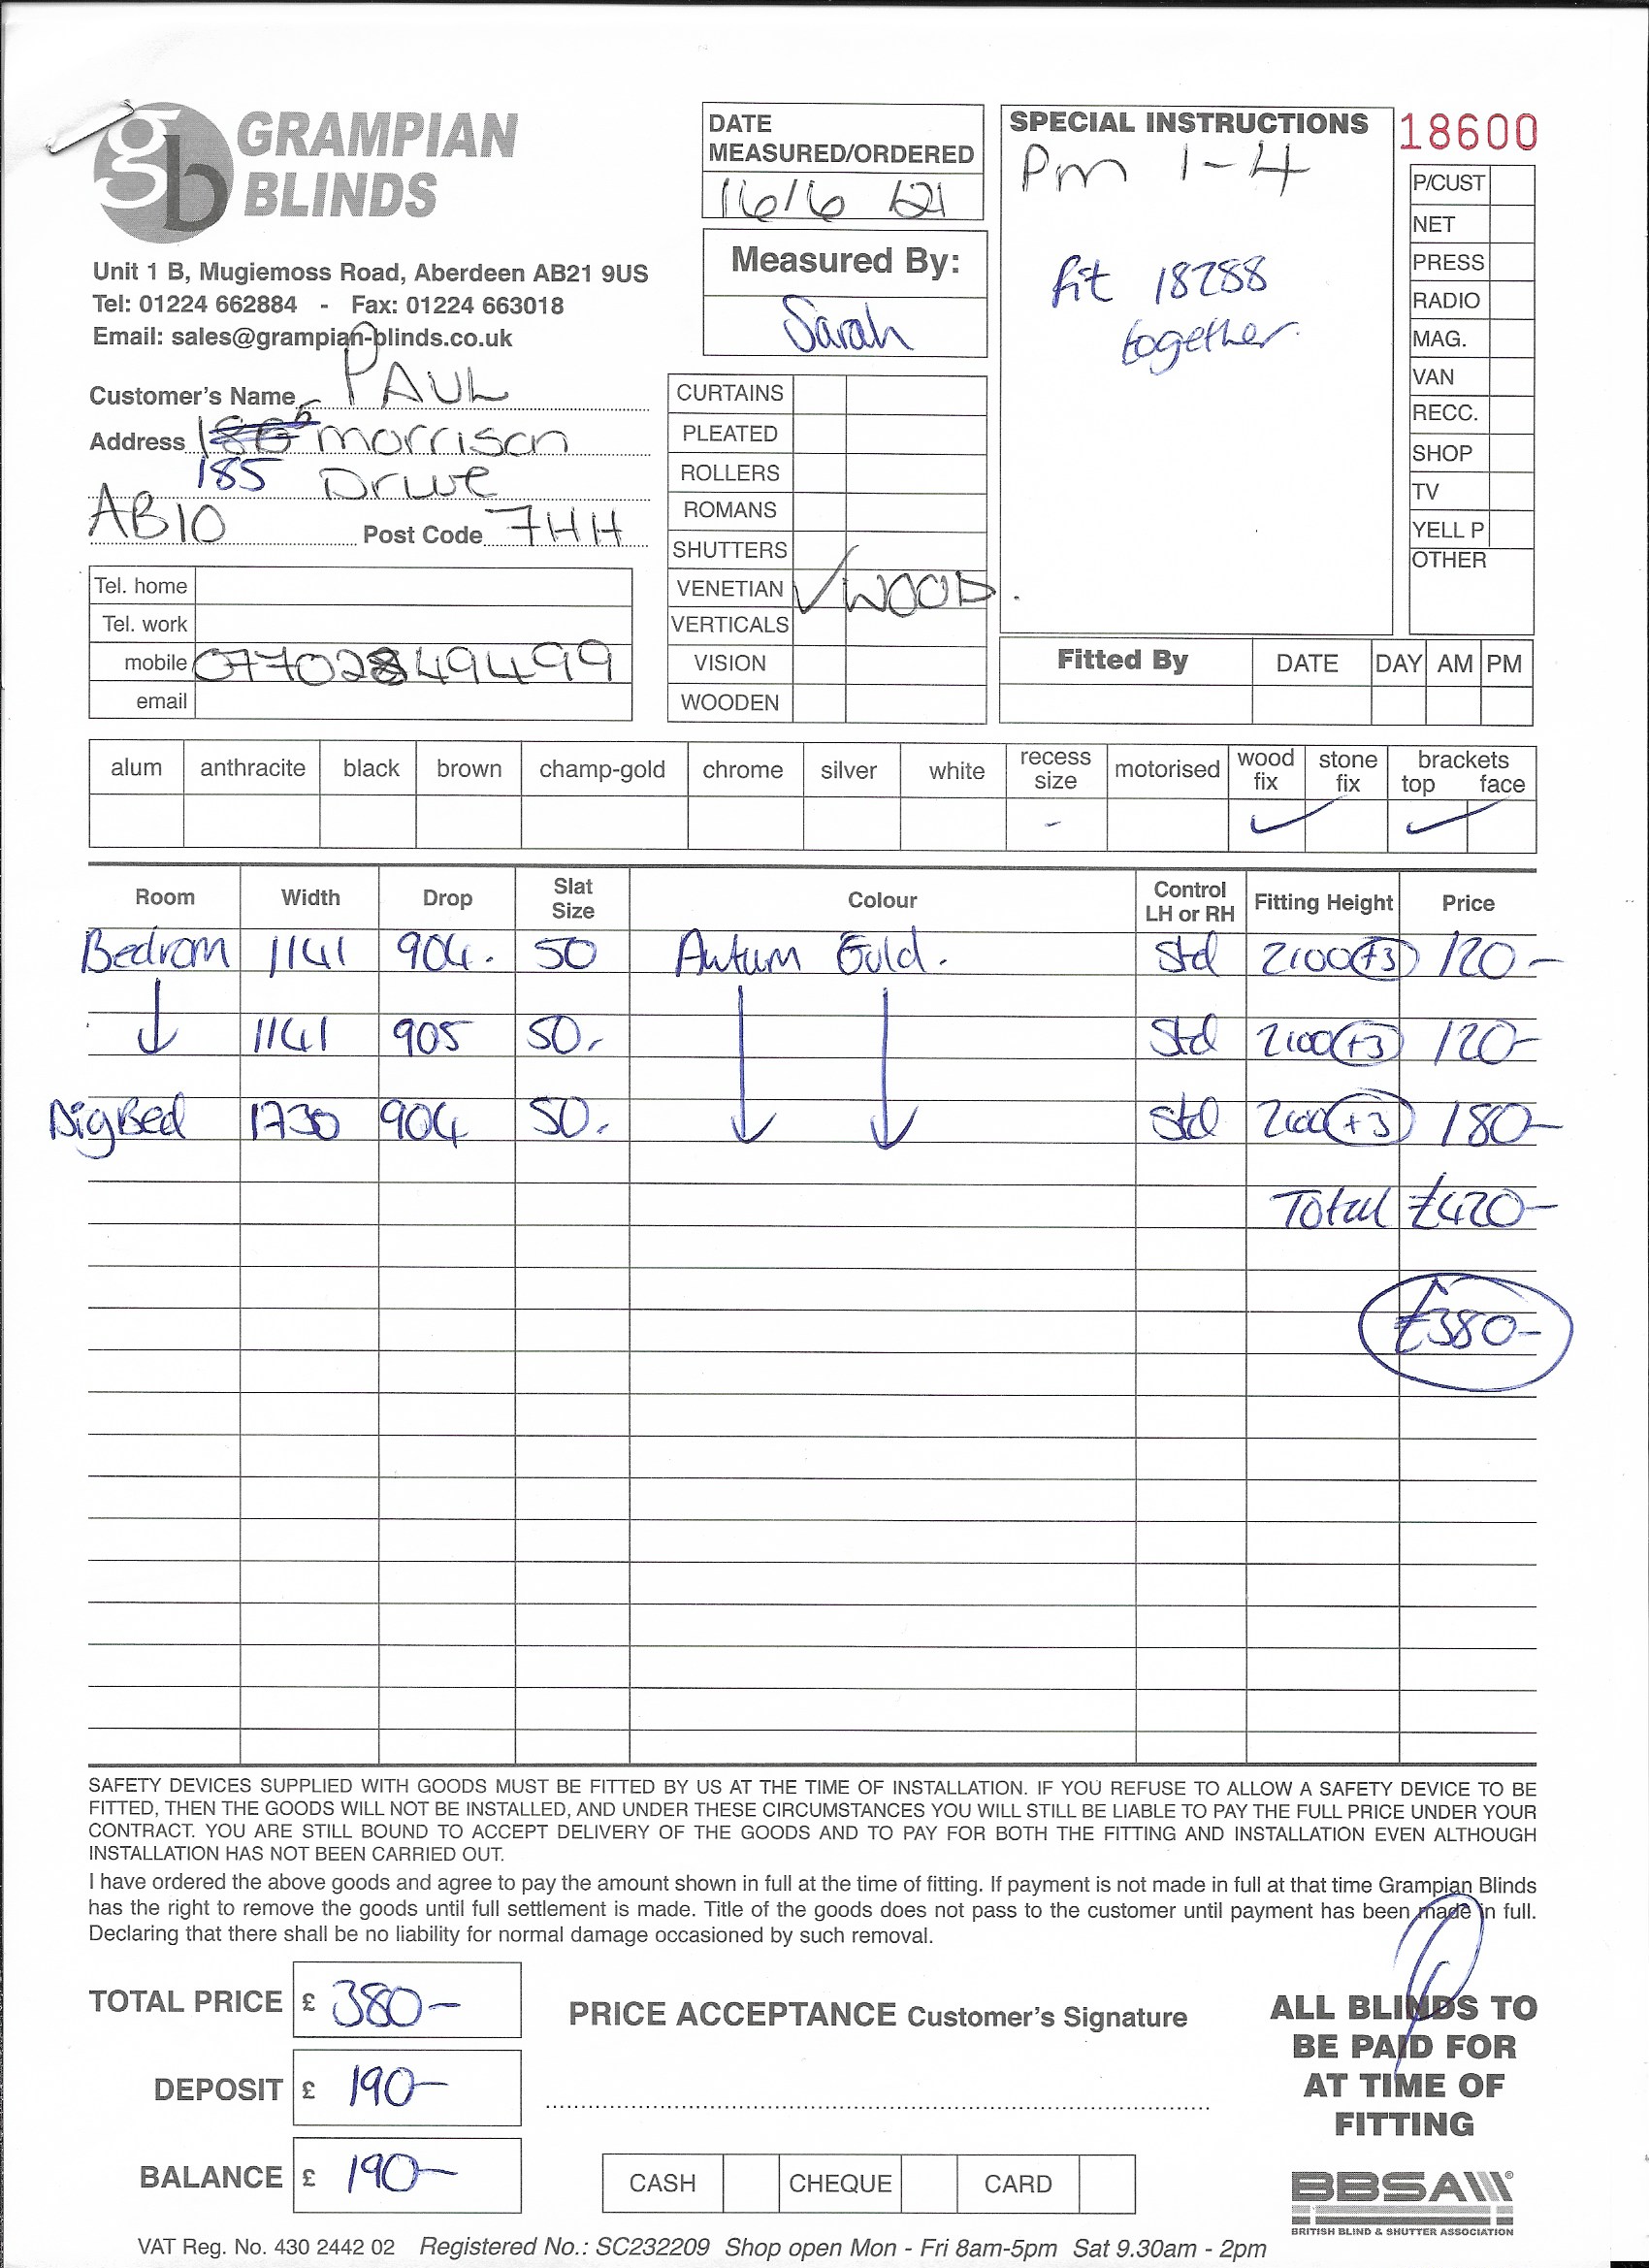 gb GRAMPIAN BLINDS
Unit 1 B, Mugiemoss Road, Aberdeen AB21 9US
Tel: 01224 662884 - Fax: 01224 663018
Email: sales@grampian-blinds.co.uk
Customer's Name PAUL
Address morrison
185 Drive
AB10 Post Code 7HH
Tel. home
Tel. work
mobile 07702849499
email
DATE
MEASURED/ORDERED
16/6/21
Measured By:
Sarah
CURTAINS
PLEATED
ROLLERS
ROMANS
SHUTTERS
VENETIAN ✓ WOOD.
VERTICALS
VISION
WOODEN
SPECIAL INSTRUCTIONS
Pm 1-4
fit 18288
together.
18600
P/CUST
NET
PRESS
RADIO
MAG.
VAN
RECC.
SHOP
TV
YELL P
OTHER
Fitted By DATE DAY AM PM
alum anthracite black brown champ-gold chrome silver white recess size motorised wood fix stone fix brackets top face
- ✓ ✓
Room Width Drop Slat Size Colour Control LH or RH Fitting Height Price
Bedroom 1141 904. 50 Autum Guld. Std 2100 +3 120-
1141 905 50. Std 2100 +3 120-
Bed 1730 904 50. Std 2100 +3 180-
Total £420-
£380-
SAFETY DEVICES SUPPLIED WITH GOODS MUST BE FITTED BY US AT THE TIME OF INSTALLATION. IF YOU REFUSE TO ALLOW A SAFETY DEVICE TO BE
FITTED, THEN THE GOODS WILL NOT BE INSTALLED, AND UNDER THESE CIRCUMSTANCES YOU WILL STILL BE LIABLE TO PAY THE FULL PRICE UNDER YOUR
CONTRACT. YOU ARE STILL BOUND TO ACCEPT DELIVERY OF THE GOODS AND TO PAY FOR BOTH THE FITTING AND INSTALLATION EVEN ALTHOUGH
INSTALLATION HAS NOT BEEN CARRIED OUT.
I have ordered the above goods and agree to pay the amount shown in full at the time of fitting. If payment is not made in full at that time Grampian Blinds
has the right to remove the goods until full settlement is made. Title of the goods does not pass to the customer until payment has been made in full.
Declaring that there shall be no liability for normal damage occasioned by such removal.
TOTAL PRICE £ 380-
DEPOSIT £ 190-
BALANCE £ 190-
PRICE ACCEPTANCE Customer's Signature
CASH CHEQUE CARD
ALL BLINDS TO
BE PAID FOR
AT TIME OF
FITTING
BBSA
BRITISH BLIND & SHUTTER ASSOCIATION
VAT Reg. No. 430 2442 02 Registered No.: SC232209 Shop open Mon - Fri 8am-5pm Sat 9.30am - 2pm